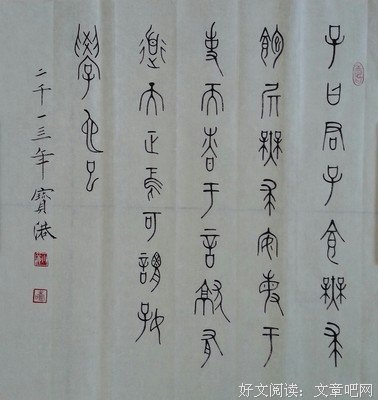 子曰君子食無求
飽居無求安敏于
事而慎于言就有
道而正焉可謂好
學也已
二千一三年寶港
好文阅读：文章吧网